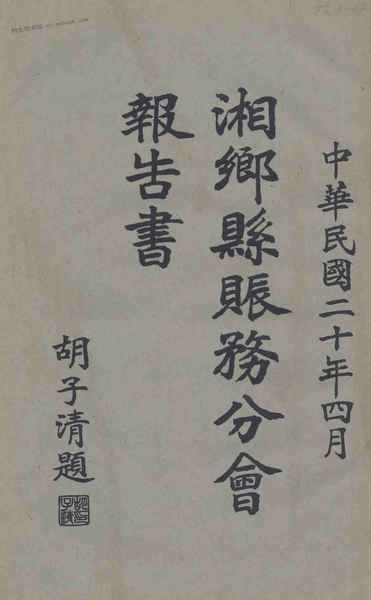 中華民國二十年四月
湘鄉縣賑務分會
報告書
胡子清題